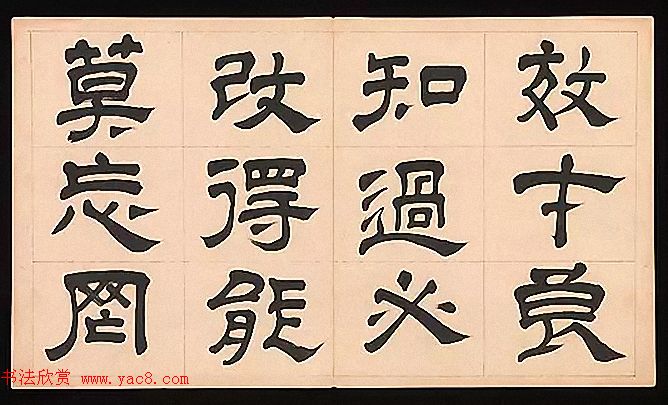 效才良
知過必
改得能
莫忘罔
书法欣赏 www.yac8.com